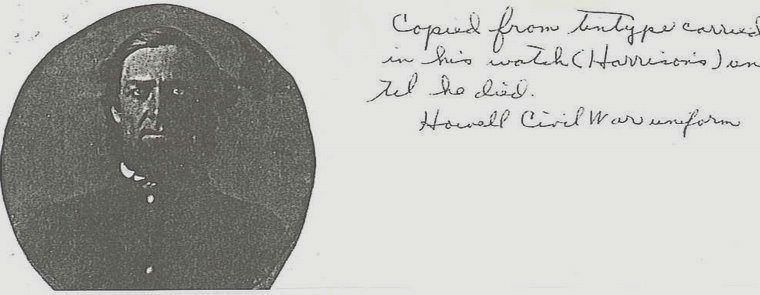 Copied from tintype carried
in his watch (Harrison's) un
til he died.
Howell Civil War uniform